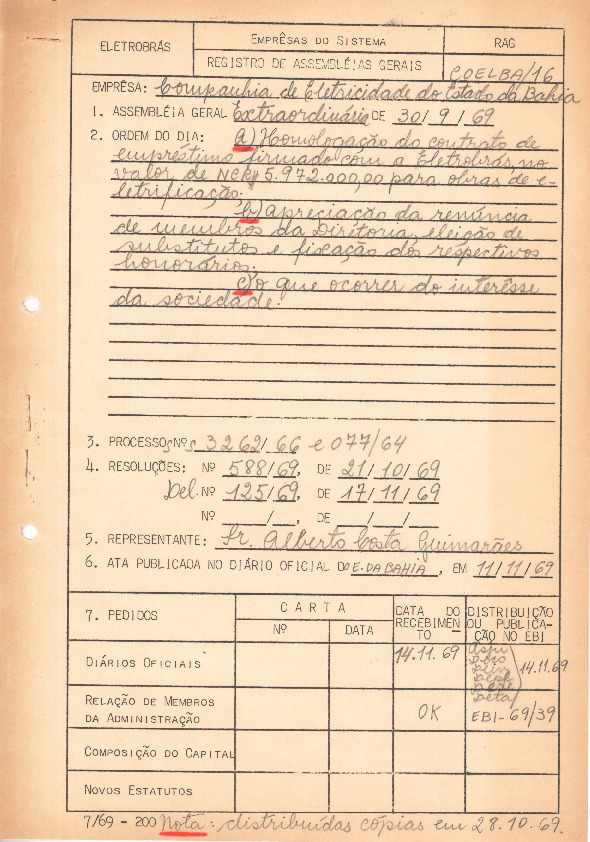 ELETROBRÁS
EMPRÊSAS DO SISTEMA
RAG
REGISTRO DE ASSEMBLÉIAS GERAIS
COELBA/16
EMPRÊSA: Companhia de Eletricidade do Estado da Bahia
1. ASSEMBLÉIA GERAL Extraordinária DE 30/9/69
2. ORDEM DO DIA: a) Homologação do contrato de
empréstimo firmado com a Eletrobrás, no
valor de NCR$ 5.972.000,00 para obras de e-
letrificação.
b) apreciação da renúncia
de membros da Diretoria, eleição de
substitutos e fixação dos respectivos
honorários.
c) o que ocorrer do interêsse
da sociedade.
3. PROCESSOS Nºs 3262/66 e 077/64
4. RESOLUÇÕES: Nº 588/69, DE 21/10/69
Del. Nº 125/69, DE 17/11/69
Nº /, DE / /
5. REPRESENTANTE: Sr. Alberto Costa Guimarães
6. ATA PUBLICADA NO DIÁRIO OFICIAL DO E. DA BAHIA, EM 11/11/69
7. PEDIDOS
CARTA
Nº
DATA
DATA DO
RECEBIMEN
TO
DISTRIBUIÇÃO
OU PUBLICA-
ÇÃO NO EBI
DIÁRIOS OFICIAIS
14.11.69
14.11.69
RELAÇÃO DE MEMBROS
DA ADMINISTRAÇÃO
OK
EBI-69/39
COMPOSIÇÃO DO CAPITAL
NOVOS ESTATUTOS
7/69 - 200 Nota: distribuídas cópias em 28.10.69.